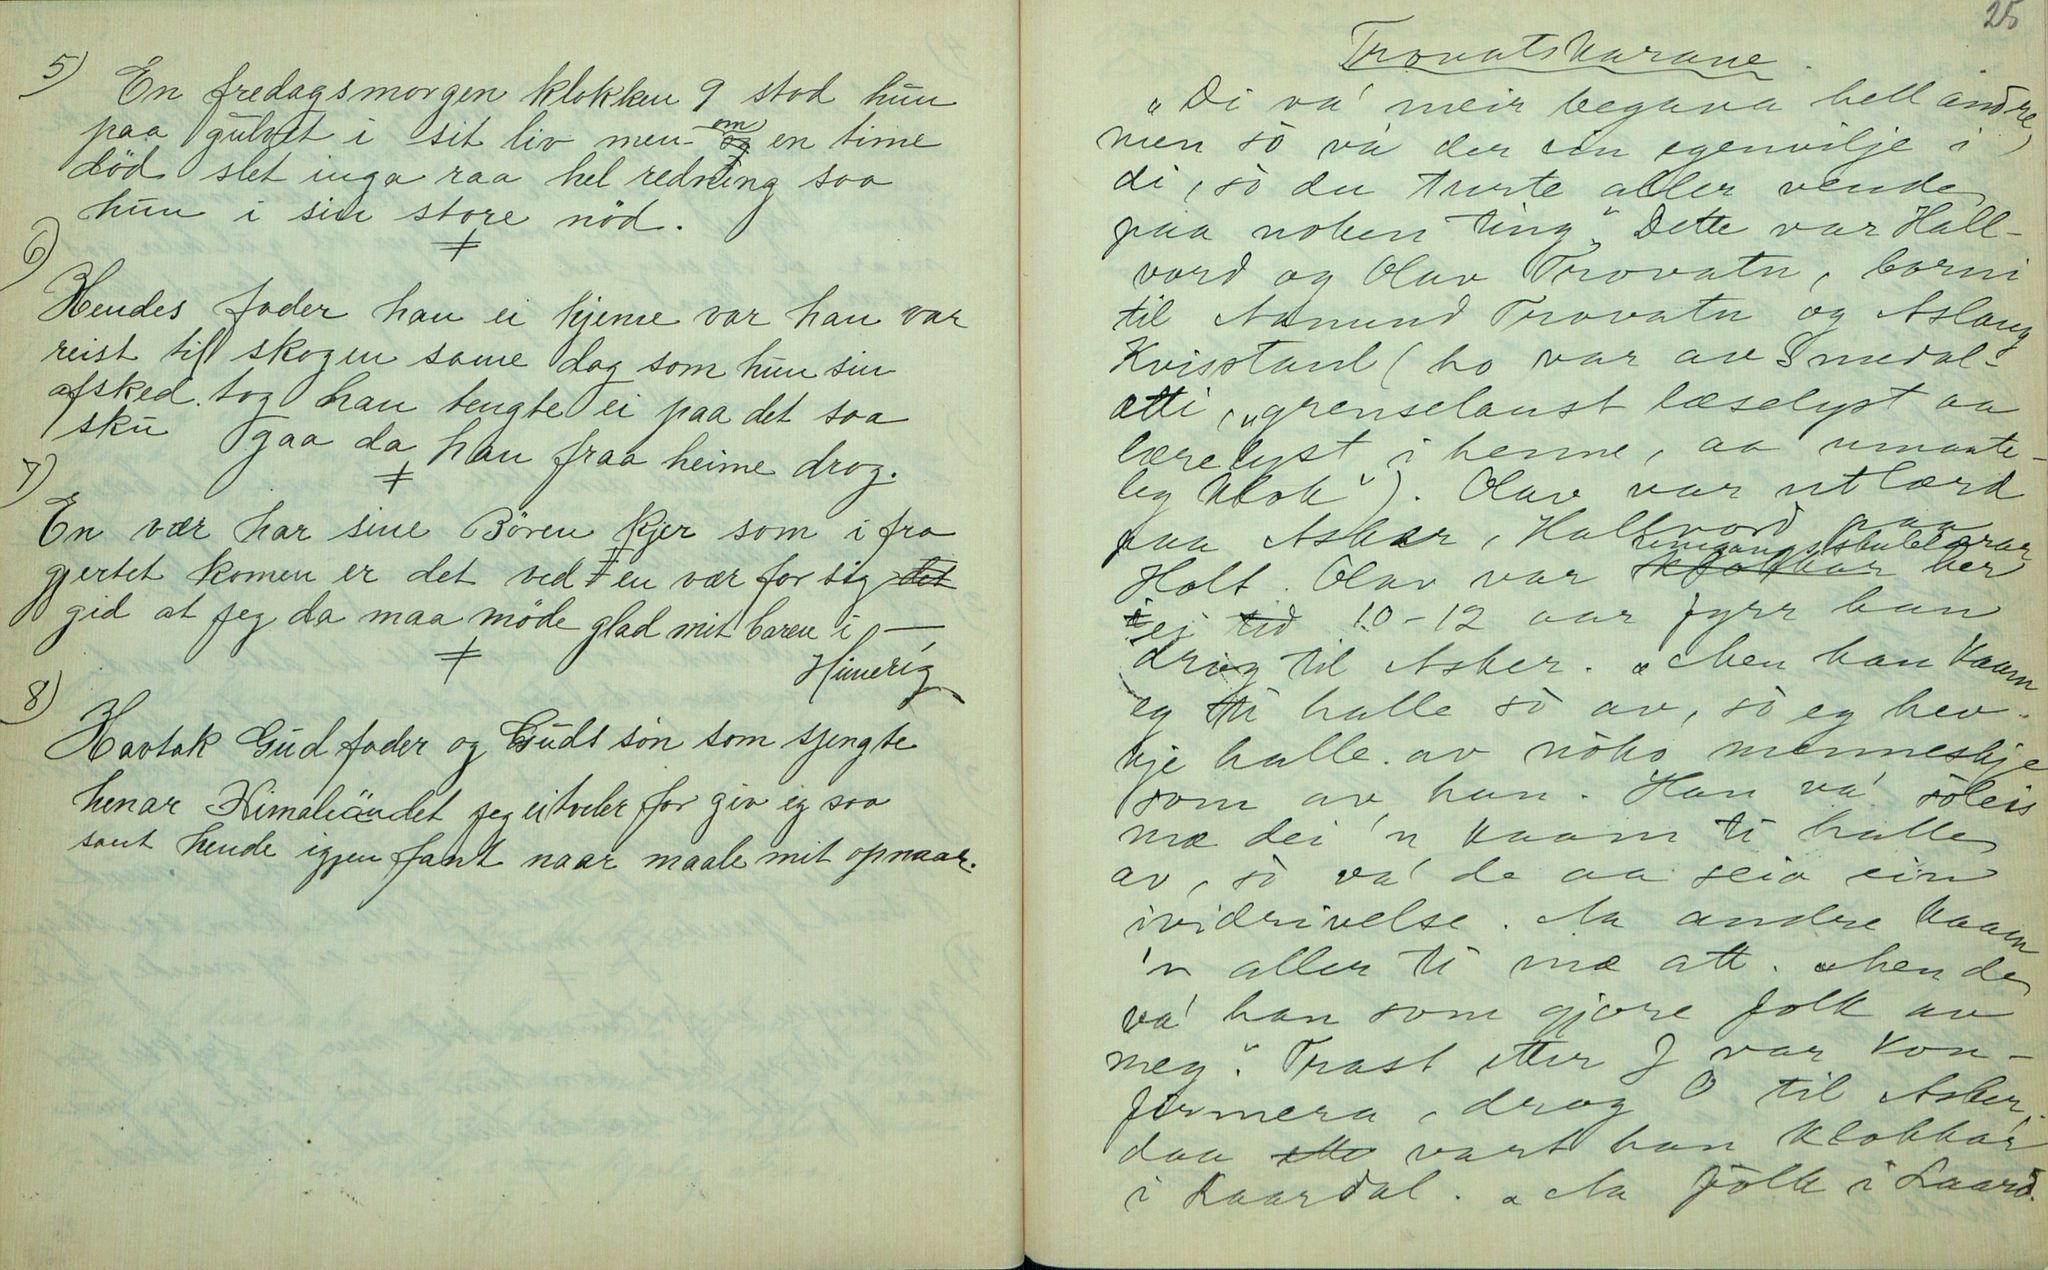 5)
En fredagsmorgen klokken 9 stod hun
paa gulvet i sit liv men om en time
död slet inga raa hel redning saa
hun i sin store nöd.
6)
Hendes fader han ei hjeme var han var
reist til skogen same dag som hun sin
afsked tog han tengte ei paa det saa
sku gaa da han fraa heime drog.
7)
En vær har sine Bören kjer som i fra
gjertet komen er det ved en vær for sig det
gid at jeg da maa möde glad mit baren i
Himerig
8)
Havtak Gud fader og Guds sön som sjengte
henar Himaliandet jeg ei for giv eg saa
sant hende igjen fant naar maale mit opnaar.
25
Trovatskarane
"Di va' meir begava hell andre,
men so va' der ein egenvilje i
di, so du turte aller vende
paa noken ting". Dette var Hall-
vord og Olav Trovatn, borni
til Aamund Trovatn og Aslaug
Kvisstand (ho var av Smedal-
ætti, "grenselaust læselyst aa
lærelyst i henne, aa umaate-
leg klok"). Olav var utlærd
paa Asker, Hallvord paa
Holt. Olav var umgangsskulelærar her
ei tid 10-12 aar fyrr han
drog til Asker. "Men han kaam
eg ti halle so av, so eg hev
kje halle av noko menneskje
som av han. Han va' soleis
mæ dei 'n kaam ti halle
av, so va' de aa seia ein
ividrivelse. Aa andre kaam
'n aller ti mæ att. Men de
va' han som gjore folk av
meg". Trast etter J var kon-
firmera, drog O til Asker,
daa vart han klokkar
i Laardal. "Aa folk i Laard.